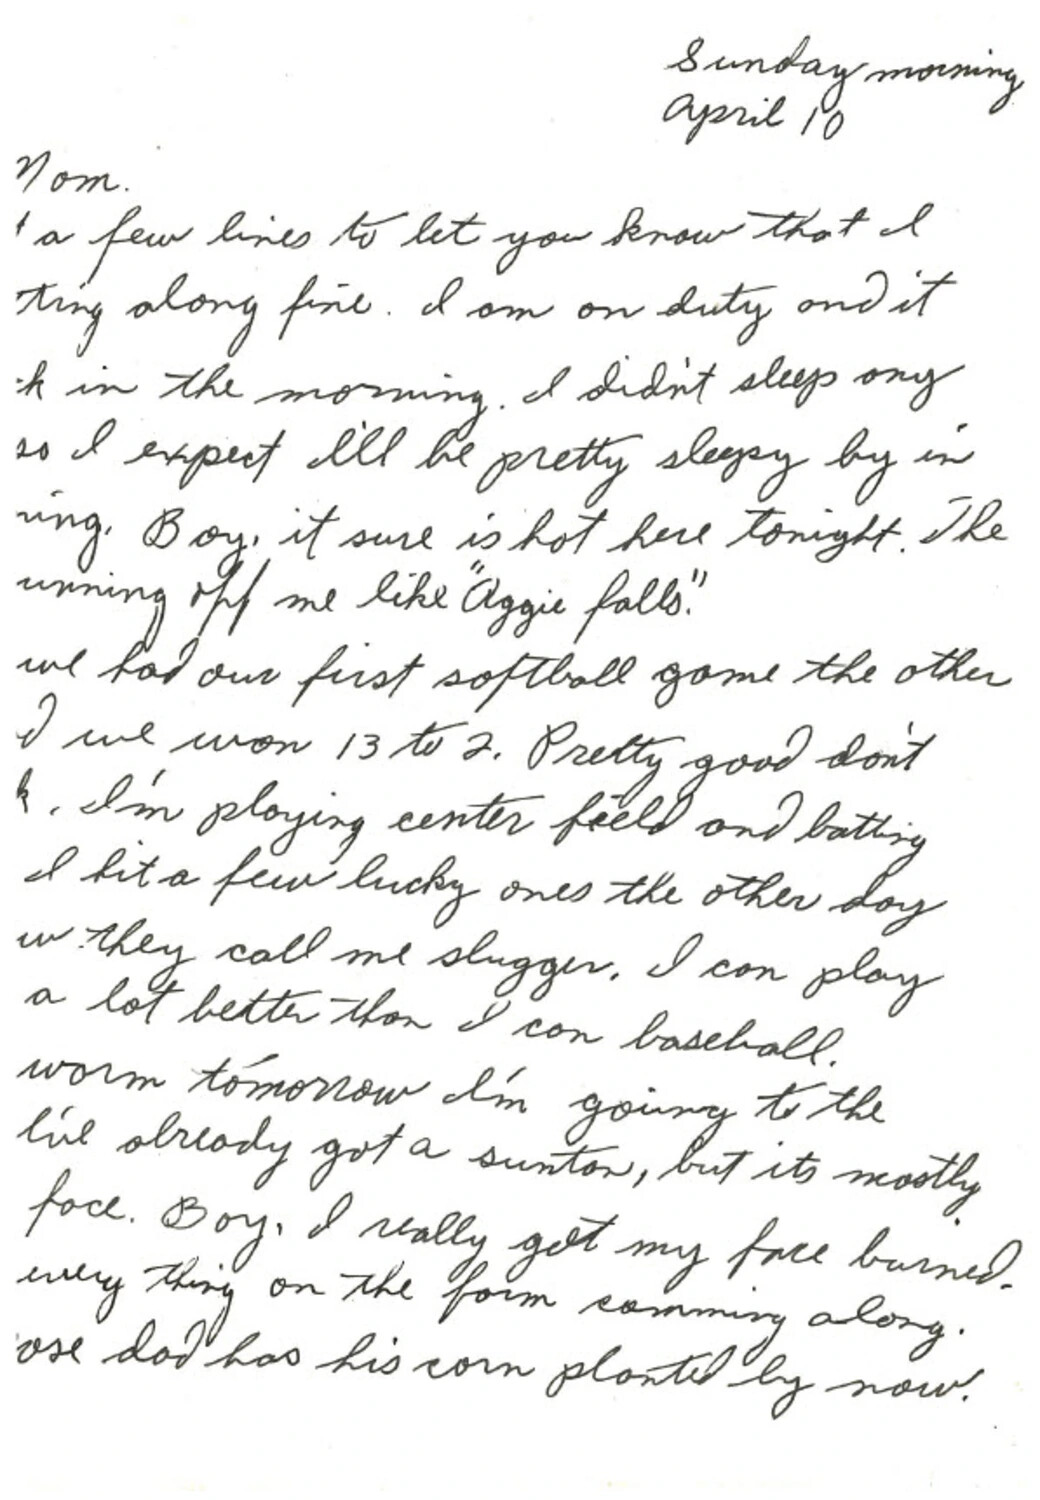 Sunday morning
April 10
Mom.
a few lines to let you know that I
ting along fine. I am on duty and it
k in the morning. I didn't sleep any
so I expect I'll be pretty sleepy by in
ing. Boy, it sure is hot here tonight. The
unning off me like "Aggie falls."
we had our first softball game the other
d we won 13 to 2. Pretty good don't
k. I'm playing center field and batting
I hit a few lucky ones the other day
w they call me slugger. I can play
a lot better than I can baseball.
warm tomorrow I'm going to the
I've already got a suntan, but its mostly
face. Boy, I really got my face burned.
every thing on the farm comming along.
ose dad has his corn planted by now.